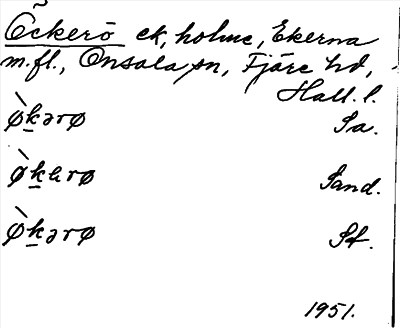 Öckerö ek, holme, Ekerna
m.fl., Onsala sn, Fjäre hd,
Hall. l.
ø̀kərø Sa.
ø̀kɐrø Sand.
ø̀kərø St.
1951.